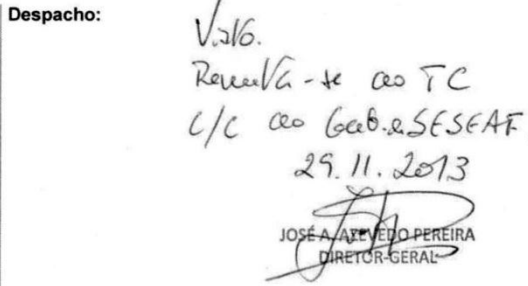 Despacho:
Visto.
Remeta-se ao TC
C/C ao Gab. SESEAF
29.11.2013
JOSÉ A. AZEVEDO PEREIRA
DIRETOR-GERAL